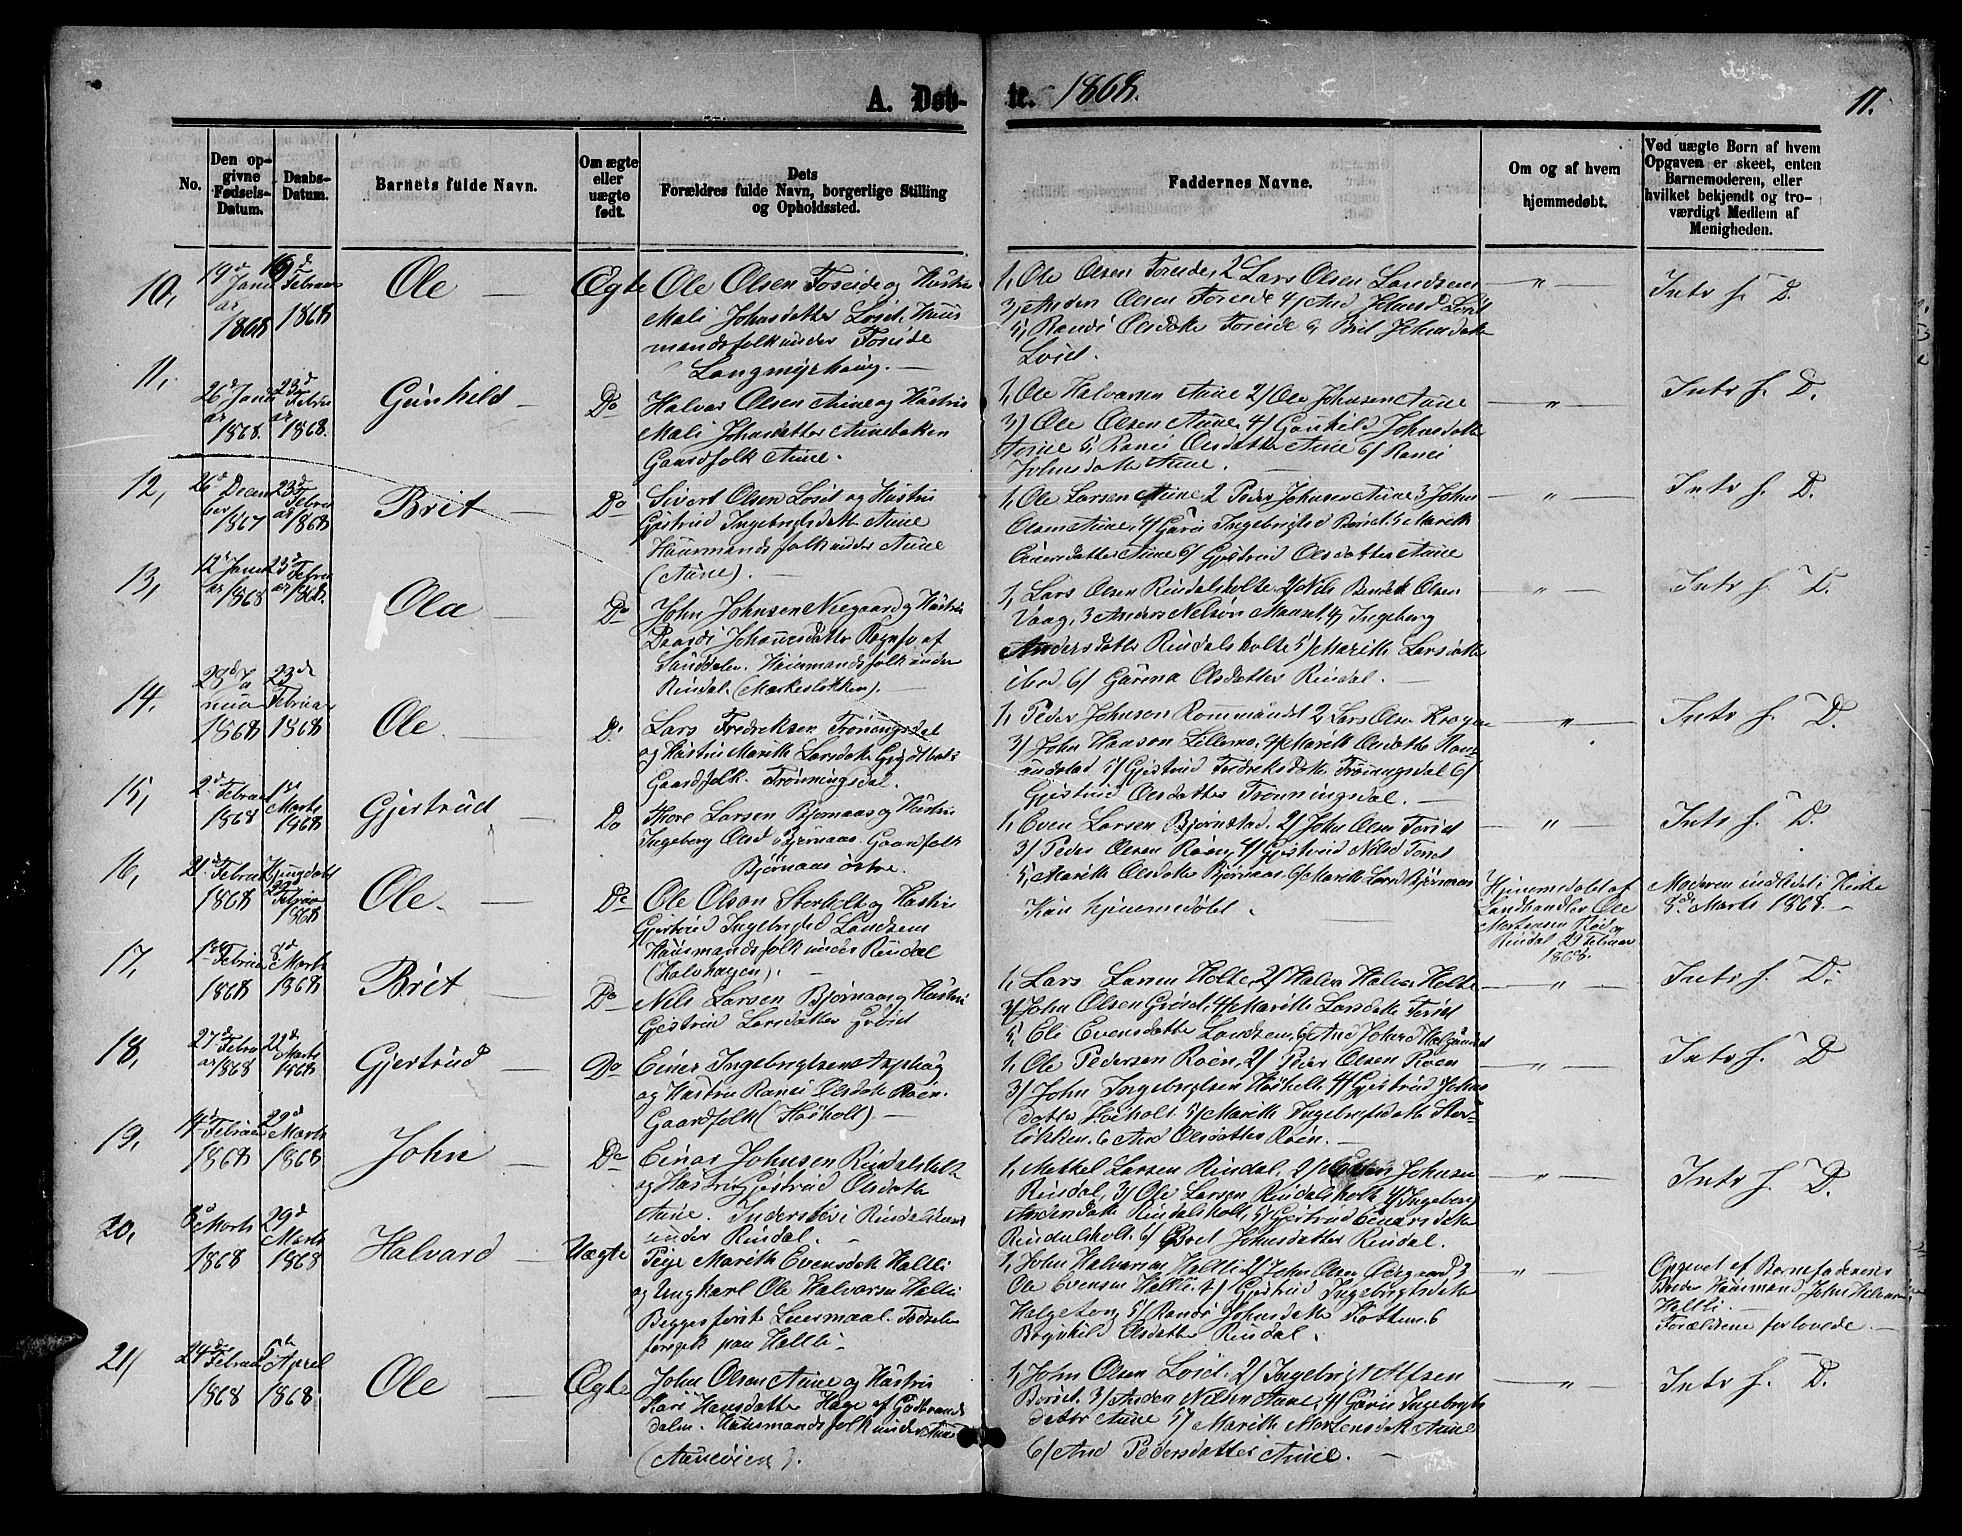 A. Døb-
te. 1868.
11.
No.
Den op-
givne
Fødsels-
Datum.
Daabs-
Datum.
Barnets fulde Navn.
Om ægte
eller
uægte
født.
Dets
Forældres fulde Navn, borgerlige Stilling
og Opholdssted.
Faddernes Navne.
Om og af hvem
hjemmedøbt.
Ved uægte Børn af hvem
Opgaven er skeet, enten
Barnemoderen, eller
hvilket bekjendt og tro-
værdigt Medlem af
Menigheden.
10,
19d
Janu
ar
1868
Februar
1868
Ole
Ægte
Ole Olsen Foseide og Hustru
Mali Johnsdatter Løset, Huus
mandsfolk under Foseide
Langmyrhaug.
1, Ole Olsen Foseide, 2 Lars Olsen Landsem
3, Anders Olsen Foseide 4/ And Johnsd Løset
5, Randi Olsdatr Foseide 6 Brit Johnsdatr
Løset.
"
Intr f. D.
11,
26d Janu
ar
1868.
23d
Februar
1868.
Gunhild
Do
Halvar Olsen Aune og Hustru
Mali Johnsdatter Aunebakken
Gaardfolk Aune.
1, Ole Halvarsen Aune 2/ Ole Johnsen Aune
3/ Ole Olsen Aune, 4/ Gunhild Johnsdatr
Aune 5, Ranei Olsdatter Aune 6/ Ranei
Johnsdatr Aune.
"
Intr f. D.
12,
26d Decem
ber
1867
23d
Februar
1868
Brit
Do
Sivert Olsen Løset og Hustru
Gjertrud Ingebrigtsdatr Aune
Huusmandsfolk under Aune
(Aune).
1, Ole Larsen Aune 2 Peder Johnsen Aune 3 John
Olsen Aune, 4/ Guru Ingebrigtsd Børset, 5 Marith
Einersdatter Aune 6/ Gjertrud Olsdatter Aune
"
Intr f. D.
13,
12d Janu
ar 1868
23d
Februar
1868.
Ola
Do
John Johnsen Negaard og Hustru
Baardi Johannesdatter Rognfo af
Sunddalen. Huusmandsfolk under
Rindal (Markesløkken).
1, Lars Olsen Rindalsholte 2, Nils Bendik Olsen
Vaag, 3 Anders Nelson Mauset 4, Ingeborg
Andersdatter Rindalsholte 5/ Marith Larsdatr
ibid, 6/ Gurena Olsdatter Rindal.
"
Intr f. D.
14.
23d Ja
nua
1868
23d
Februar
1868
Ole
Do
Lars Fredriksen Trønningsdal
og Hustru Marith Larsdatr
Gaardfolk Trønningsdal.
1, Peder Johnsen Rommundst 2, Lars Olsen
3/ John Hansen Lillemo, 4/ Marith Olsdatr
5/ Gjertrud Fredriksdatr Trønningsdal 6/
Gjertrud Olsdatter Trønningsdal.
"
Intr f. D.
15,
2d Februar
1868
1st
Marts
1868
Gjertrud
Do
Thore Larsen Bjørnaas og Hustru
Ingeborg Olsd Bjørnaas. Gaardfolk
Bjørnaas østre.
1, Even Larsen Bjørnstad. 2/ John Olsen Toriset
3/ Peder Olsen Røen, 4/ Gjertrud Nilsd
5, Marith Olsdatr Bjørnaas 6/ Marith Larsd Bjørnaas
"
Intr f. D.
16,
Februar
1868
Februar
1868
Ole
Do
Ole Olsen Storholt og Hustru
Gjertrud Ingebrigtsd Landsem
Huusmandsfolk under Rindal
(Halvhagen).
Kun hjemmedøbt.
Hjemmedøbt af
Landhandler Ole
Mortensen
Rindal 29 Februar
1868.
Moderen indledet i Kirke
8de Marts 1868.
17,
Februar
1868
8d
Marts
1868
Brit
Do
Nils Larsen Bjørnaas og Hustru
Gjertrud Larsdatter Grøset
1, Lars Larsen Holte, 2/ Halvor Halvors Holte
3/ John Olsen Grøset, 4/ Marith Larsdatr
5, Eli Evensdatter Landsem, 6/ And Johnsd
"
Intr f. D.
18,
27d
Februar
1868
22d
Marts
1868
Gjertrud
Do
Einer Ingebrigtsen Asphoug
og Hustru Ranei Olsdatr Røen.
Gaardfolk (Høiholt).
1, Ole Pedersen Røen, 2/ Peder Olsen Røen
3/ John Ingebrigtsen Høiholt. 4/ Gjertrud Johns
datter Høiholt. 5/ Marith Ingebrigtsdatr Stor-
løkken. 6 And Olsdatter Røen.
"
Intr f. D
19,
Februar
1868
29d
Marts
1868
John
Do
Einar Johnsen Rindalsholt
og Hustru Gjertrud Olsdatr
Aune. Inderster i Rindalslund
under Rindal.
1, Mekkel Larsen Rindal, 2/ Johnsen
Rindal, 3/ Ole Larsen Rindalsholt 4/ Ingeborg
Andersdatr Rindalsholt, 5/ Gjertrud Einarsdatr
Rindalsholt. 6/ Bret Johnsdatter Rindal.
"
Intr f. D.
20,
8d
Marts
1868
29d
Marts
1868
Halvard
Uægte
Pige Marith Evensdatr Haltli
og Ungkarl Ole Halvarsen Haltli
Begges første Leiermaal. Fødselen
foregik paa Haltli.
1, John Halvarsen Haltli 2/ John Olsen Ødegaard 3
Ole Evensen Haltli. 4/ Gjertrud Ingebrigtsdatr
Helgetorg 5/ Randi Johnsdatr Flottum. 6
Bøgnhild Olsdatter Rindal.
"
Opgivet af Barnefaderens
Broder Huusmand John Halvarsen
Haltli.
Forældrene forlovede.
21/
24de
Februar
1868
5te
April
1868
Ole
Ægte
John Olsen Aune og Hustru
Kari Hansdatter Hage af Gudbrands
dalen. Huusmandsfolk under Aune
(Auneøien).
1, John Olsen Løset. 2/ Ingebrigt Alfsen
Børset. 3/ Anders Nilsen Aune, 4/ Guru Ingebrigts
datter Aune 5/ Marith Mortensdatr Aune
6/ And Pedersdatter Aune.
"
Intr f. D.